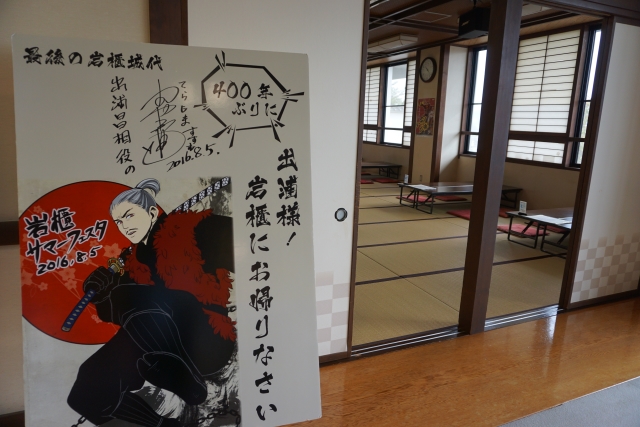 最後の岩櫃城代
出浦昌相役の
てらじま
すすむ
2016.8.5.
400年
ぶりに
出浦様！
岩櫃にお帰りなさい
岩櫃
サマーフェスタ
2016.8.5